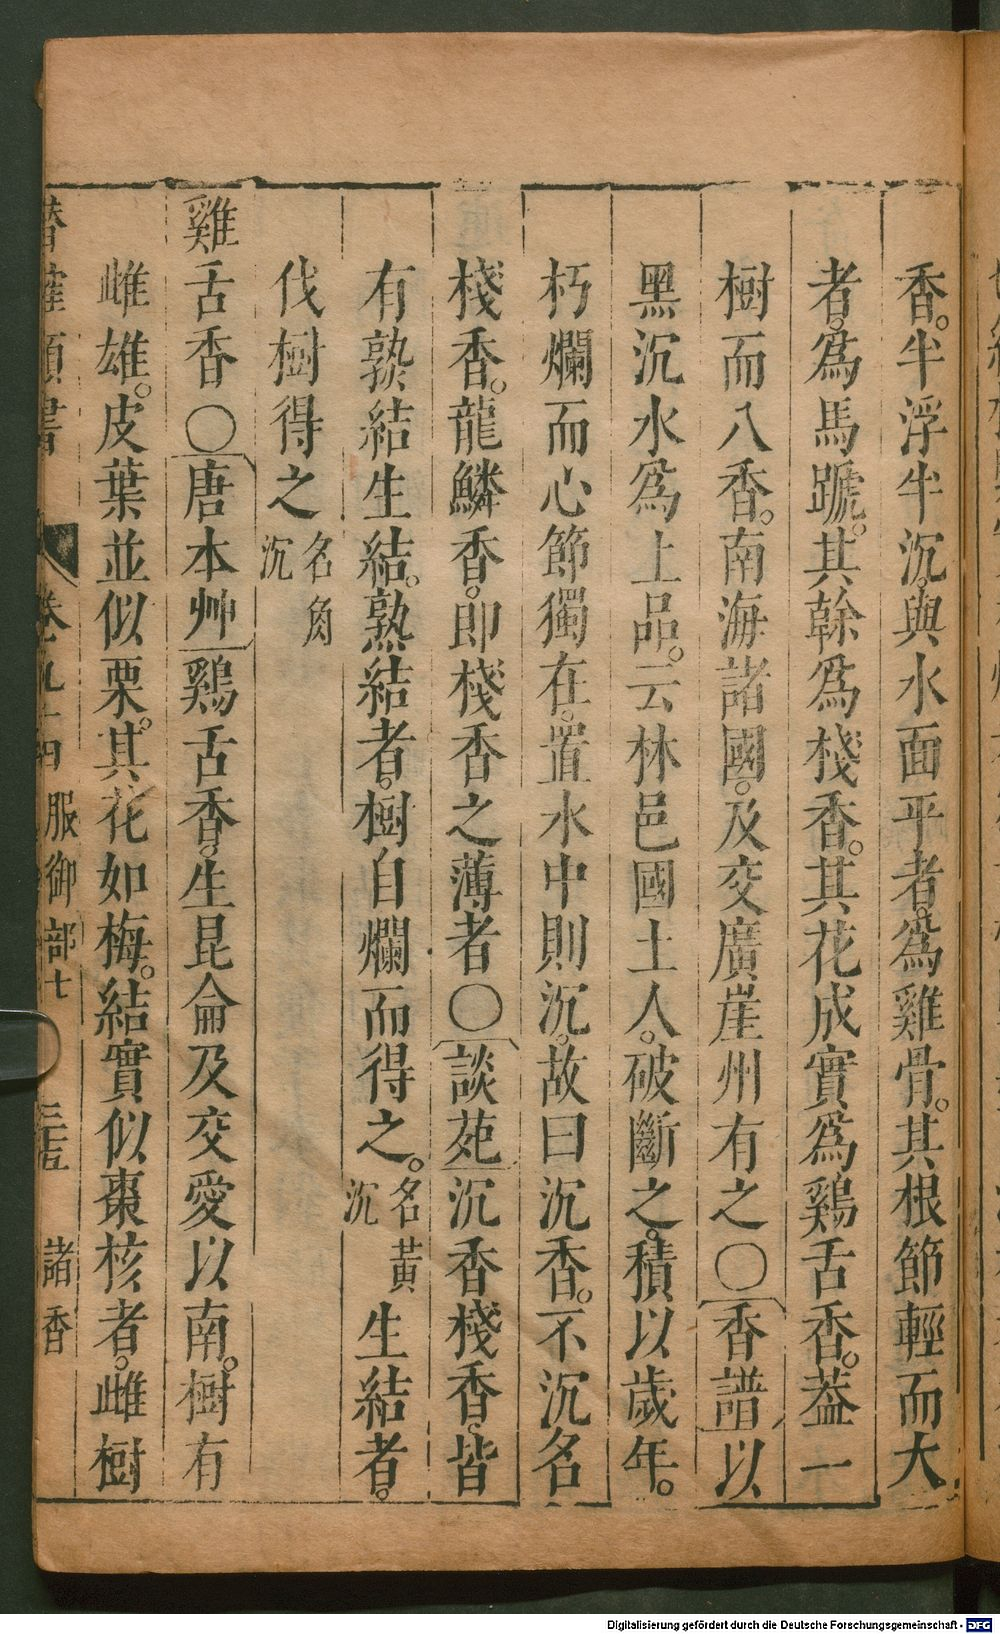 香。半浮半沉。與水面平者。爲雞骨。其根節輕而大
者。爲馬蹏。其榦爲棧香。其花成實爲鷄舌香。葢一
樹而八香。南海諸國。及交廣崖州有之〇香譜以
黑沉水爲上品。云林邑國土人。破斷之。積以歲年。
朽爛而心節獨在。置水中則沉。故曰沉香。不沉名
棧香。龍鱗香。即棧香之薄者〇談苑沉香棧香。皆
有孰結生結。熟結者。樹自爛而得之。名黃沉生結者。
伐樹得之名角沉
雞舌香〇唐本艸鷄舌香。生昆侖及交愛以南。樹有
雌雄。皮葉並似栗。其花如梅。結實似棗核者。雌樹
類書 卷九十四 服御部七 諸香
Digitalisierung gefördert durch die Deutsche Forschungsgemeinschaft - DFG